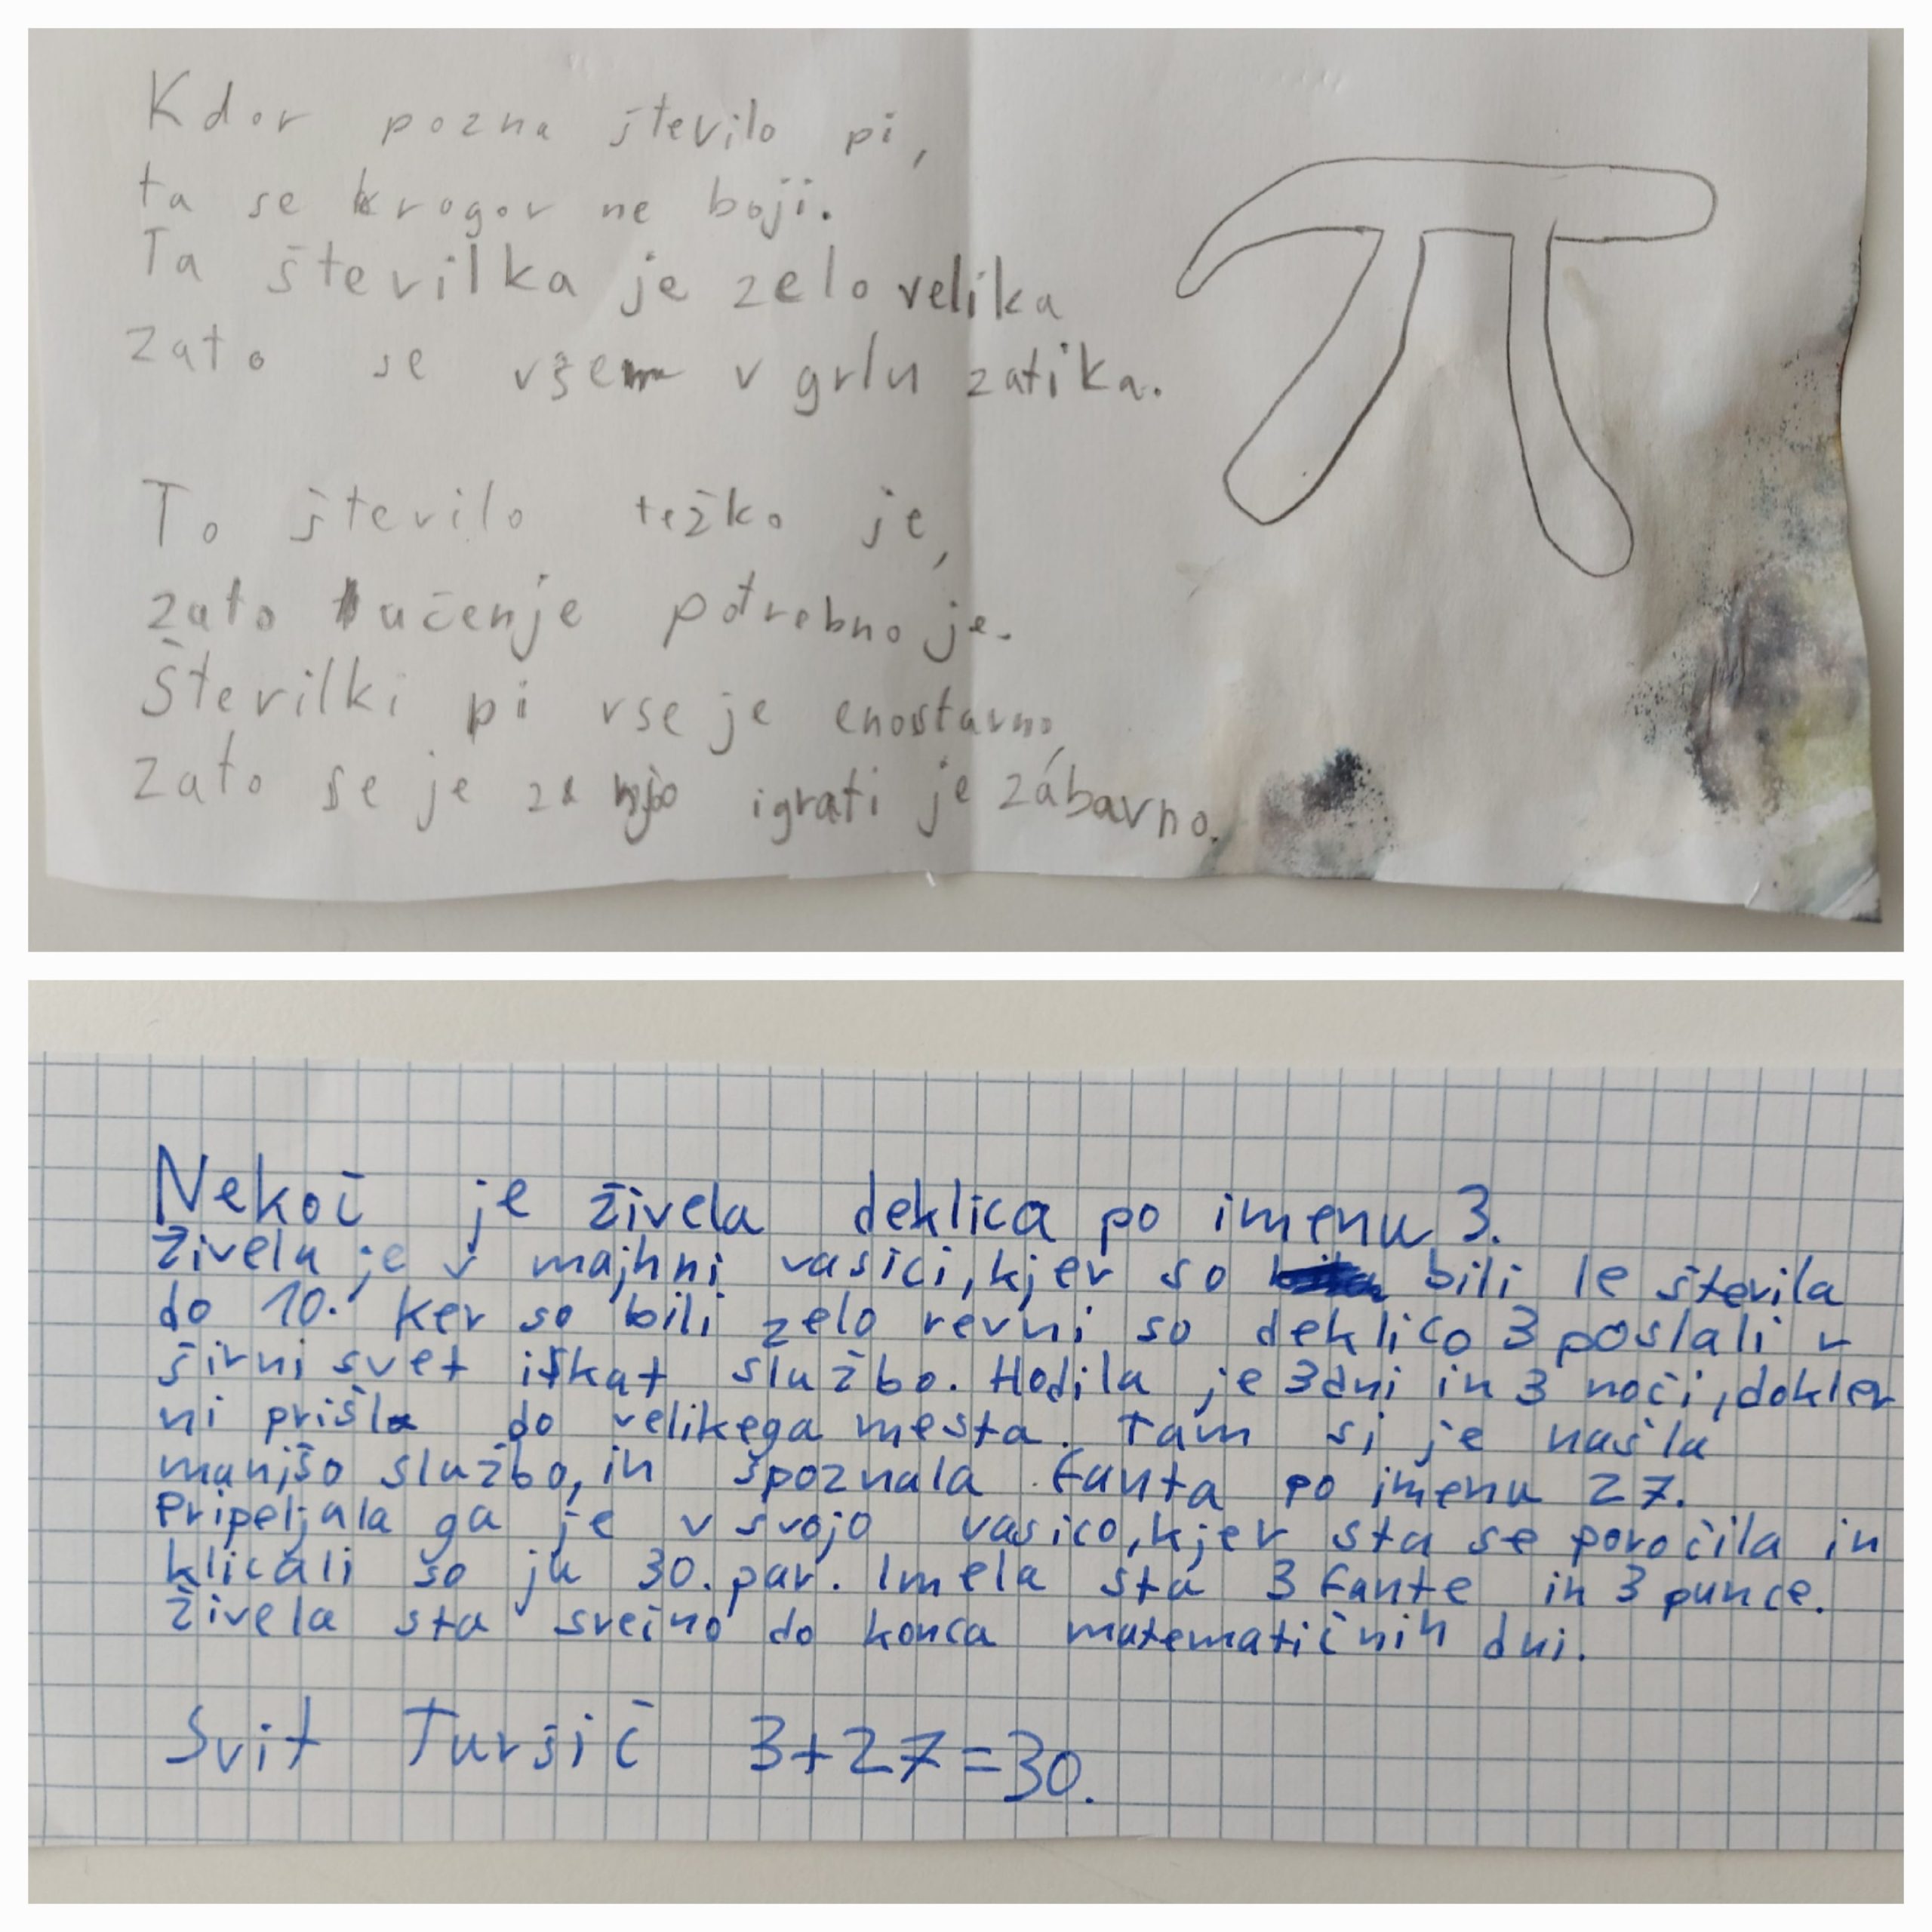 Kdor pozna število pi,
ta se krogov ne boji.
Ta številka je zelo velika
zato se vsem v grlu zatika.
To število težko je,
zato učenje potrebno je.
Številki pi vse je enostavno,
zato se je z njo igrati je zabavno.
Nekoč je živela deklica po imenu 3.
Živela je v majhni vasici, kjer so bili le števila
do 10. Ker so bili zelo revni so deklico 3 poslali v
širni svet iskat službo. Hodila je 3 dni in 3 noči, dokler
ni prišla do velikega mesta. Tam si je našla
manjšo službo, in spoznala fanta po imenu 27.
Pripeljala ga je v svojo vasico, kjer sta se poročila in
klicali so ju 30. par. Imela sta 3 fante in 3 punce.
Živela sta srečno do konca matematičnih dni.
Svit Turšič 3+27=30.